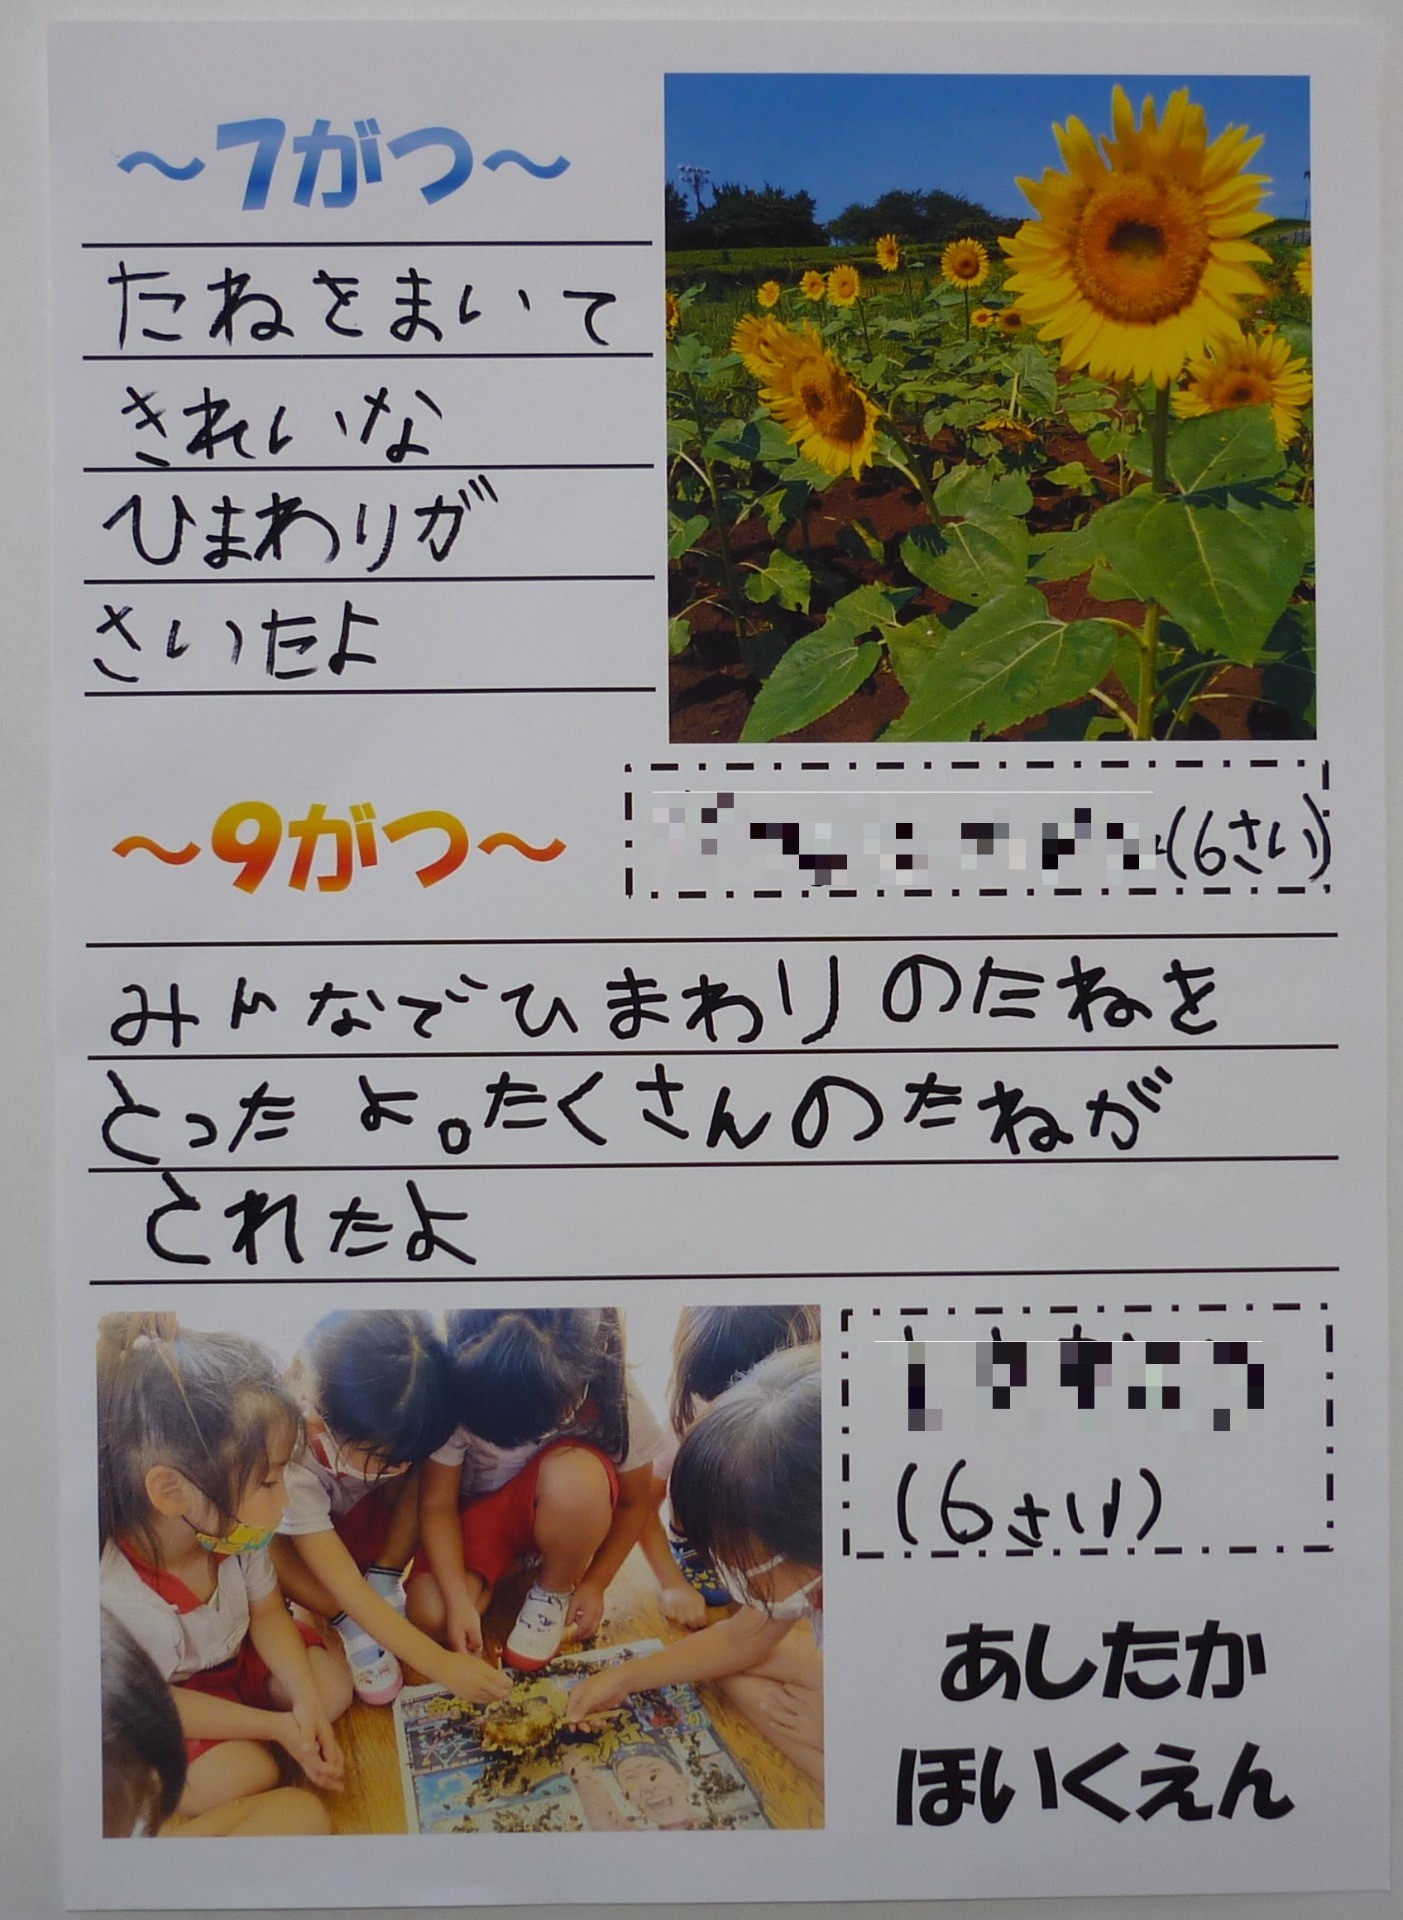 ～7がつ～
たねをまいて
きれいな
ひまわりが
さいたよ
～9がつ～
(6さい)
みんなでひまわりのたねを
とったよ。たくさんのたねが
とれたよ
(6さい)
あしたか
ほいくえん